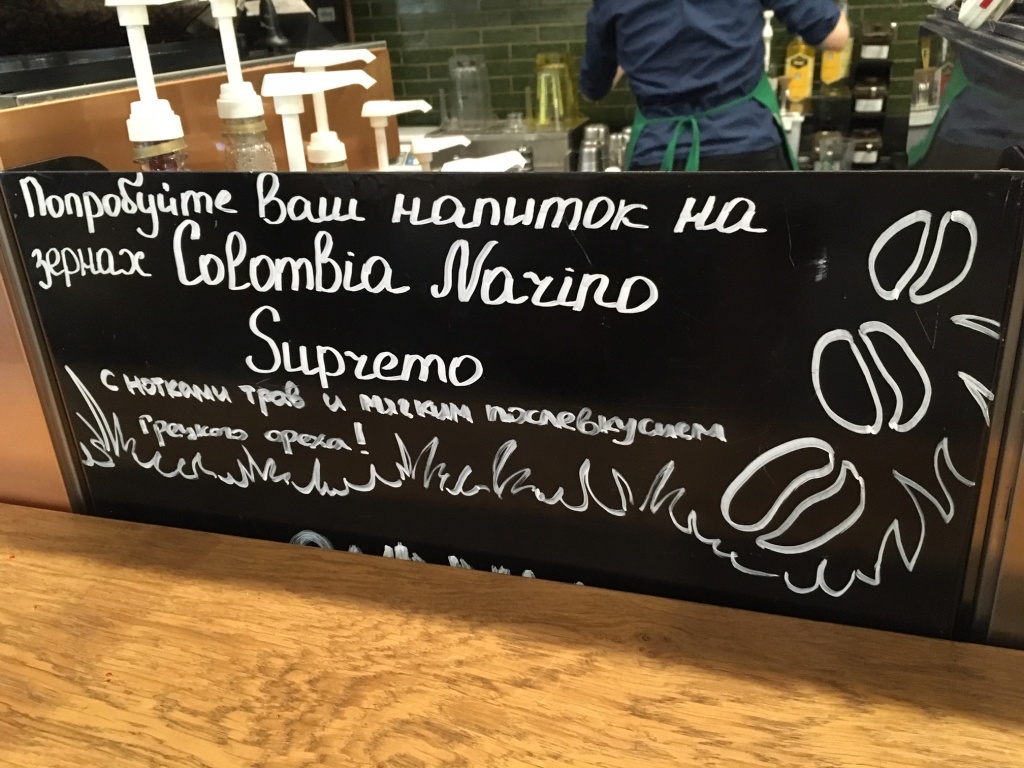 Попробуйте Ваш напиток на
зернах Colombia Narino
Supremo
с нотками трав и мягким послевкусием
Грецкого ореха!